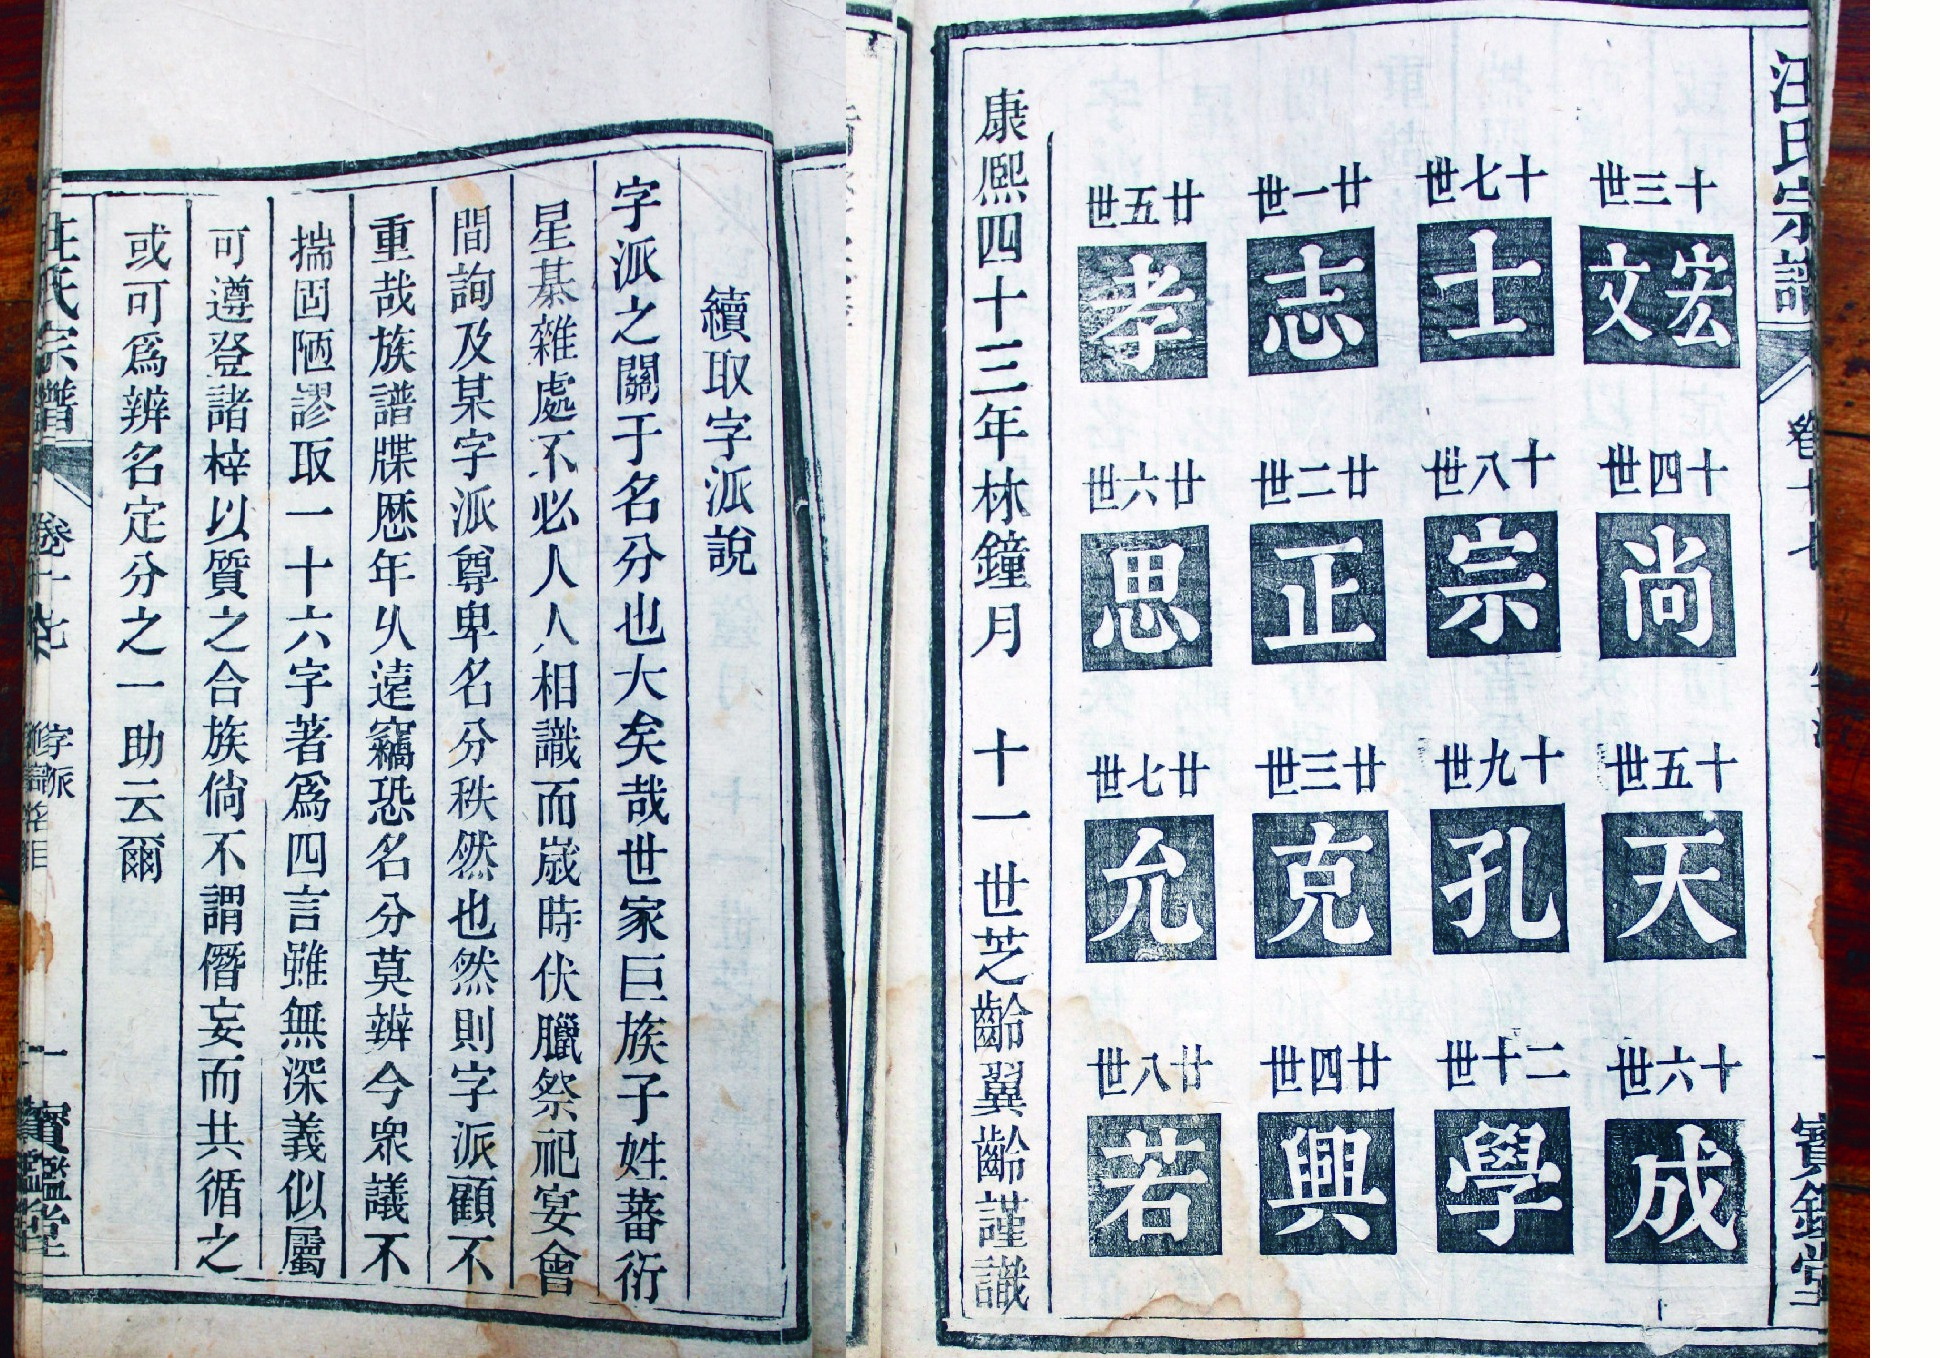 續取字派說
字派之關于名分也大矣哉世家巨族子姓蕃衍
星棊雜處不必人人相識而歲時伏臘祭祀宴會
間詢及某字派尊卑名分秩然也然則字派顧不
重哉族譜牒歷年久遠竊恐名分莫辨今衆議不
揣固陋謬取一十六字著爲四言雖無深義似屬
可遵登諸梓以質之合族倘不謂僭妄而共循之
或可爲辨名定分之一助云爾
汪氏宗譜 卷十七 字派 一 寶鑑堂
汪氏宗譜 卷十七 一 寶鑑堂
十三世
宏文
十四世
尚
十五世
天
十六世
成
十七世
士
十八世
宗
十九世
孔
二十世
學
廿一世
志
廿二世
正
廿三世
克
廿四世
興
廿五世
孝
廿六世
思
廿七世
允
廿八世
若
康熙四十三年林鐘月 十一世芝齡翼齡謹識